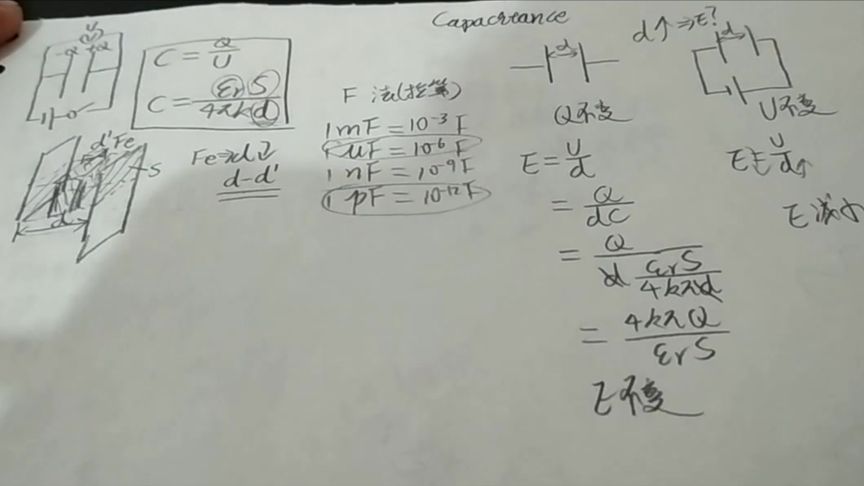 Capacitance
U
-Q +Q
C = Q/U
C = εrS/4πkd
d' Fe
S
d
Fe⇒d↓
d-d'
F 法(拉第)
1mF = 10⁻³F
1μF = 10⁻⁶F
1nF = 10⁻⁹F
1pF = 10⁻¹²F
d↑⇒E?
d
Q不变
E = U/d
= Q/dC
= Q/(d εrS/4kπd)
= 4kπQ/εrS
E不变
d
U不变
E = U/d↑
E减小